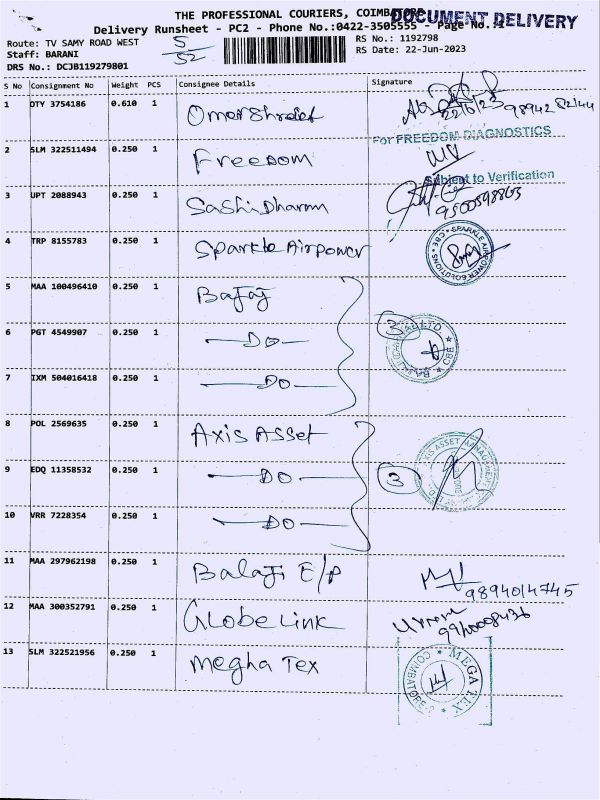 THE PROFESSIONAL COURIERS, COIMBATORE
DOCUMENT DELIVERY
Delivery Runsheet - PC2 - Phone No.:0422-3505555 - Page No.:1
Route: TV SAMY ROAD WEST
5/52
RS No.: 1192798
Staff: BARANI
RS Date: 22-Jun-2023
DRS No.: DCJB119279801
S No Consignment No Weight PCS Consignee Details Signature
1 DTY 3754186 0.610 1
22/6/23
For FREEDOM DIAGNOSTICS
2 SLM 322511494 0.250 1 Freedom
Subject to Verification
3 UPT 2088943 0.250 1 SashiDharan
4 TRP 8155783 0.250 1 Sparkle Airpower
SPARKLE AIR POWER SOLUTIONS * CBE *
5 MAA 100496410 0.250 1 Bajaj
3
6 PGT 4549907 0.250 1 —DO—
7 IXM 504016418 0.250 1 —DO—
8 POL 2569635 0.250 1 Axis Asset
AXIS ASSET MANAGEMENT
9 EDQ 11358532 0.250 1 —DO—
3
10 VRR 7228354 0.250 1 —DO—
11 MAA 297962198 0.250 1 Balaji E/P
9894014745
12 MAA 300352791 0.250 1 Globe Link
13 SLM 322521956 0.250 1 Megha Tex
* MEGA TEX * COIMBATORE